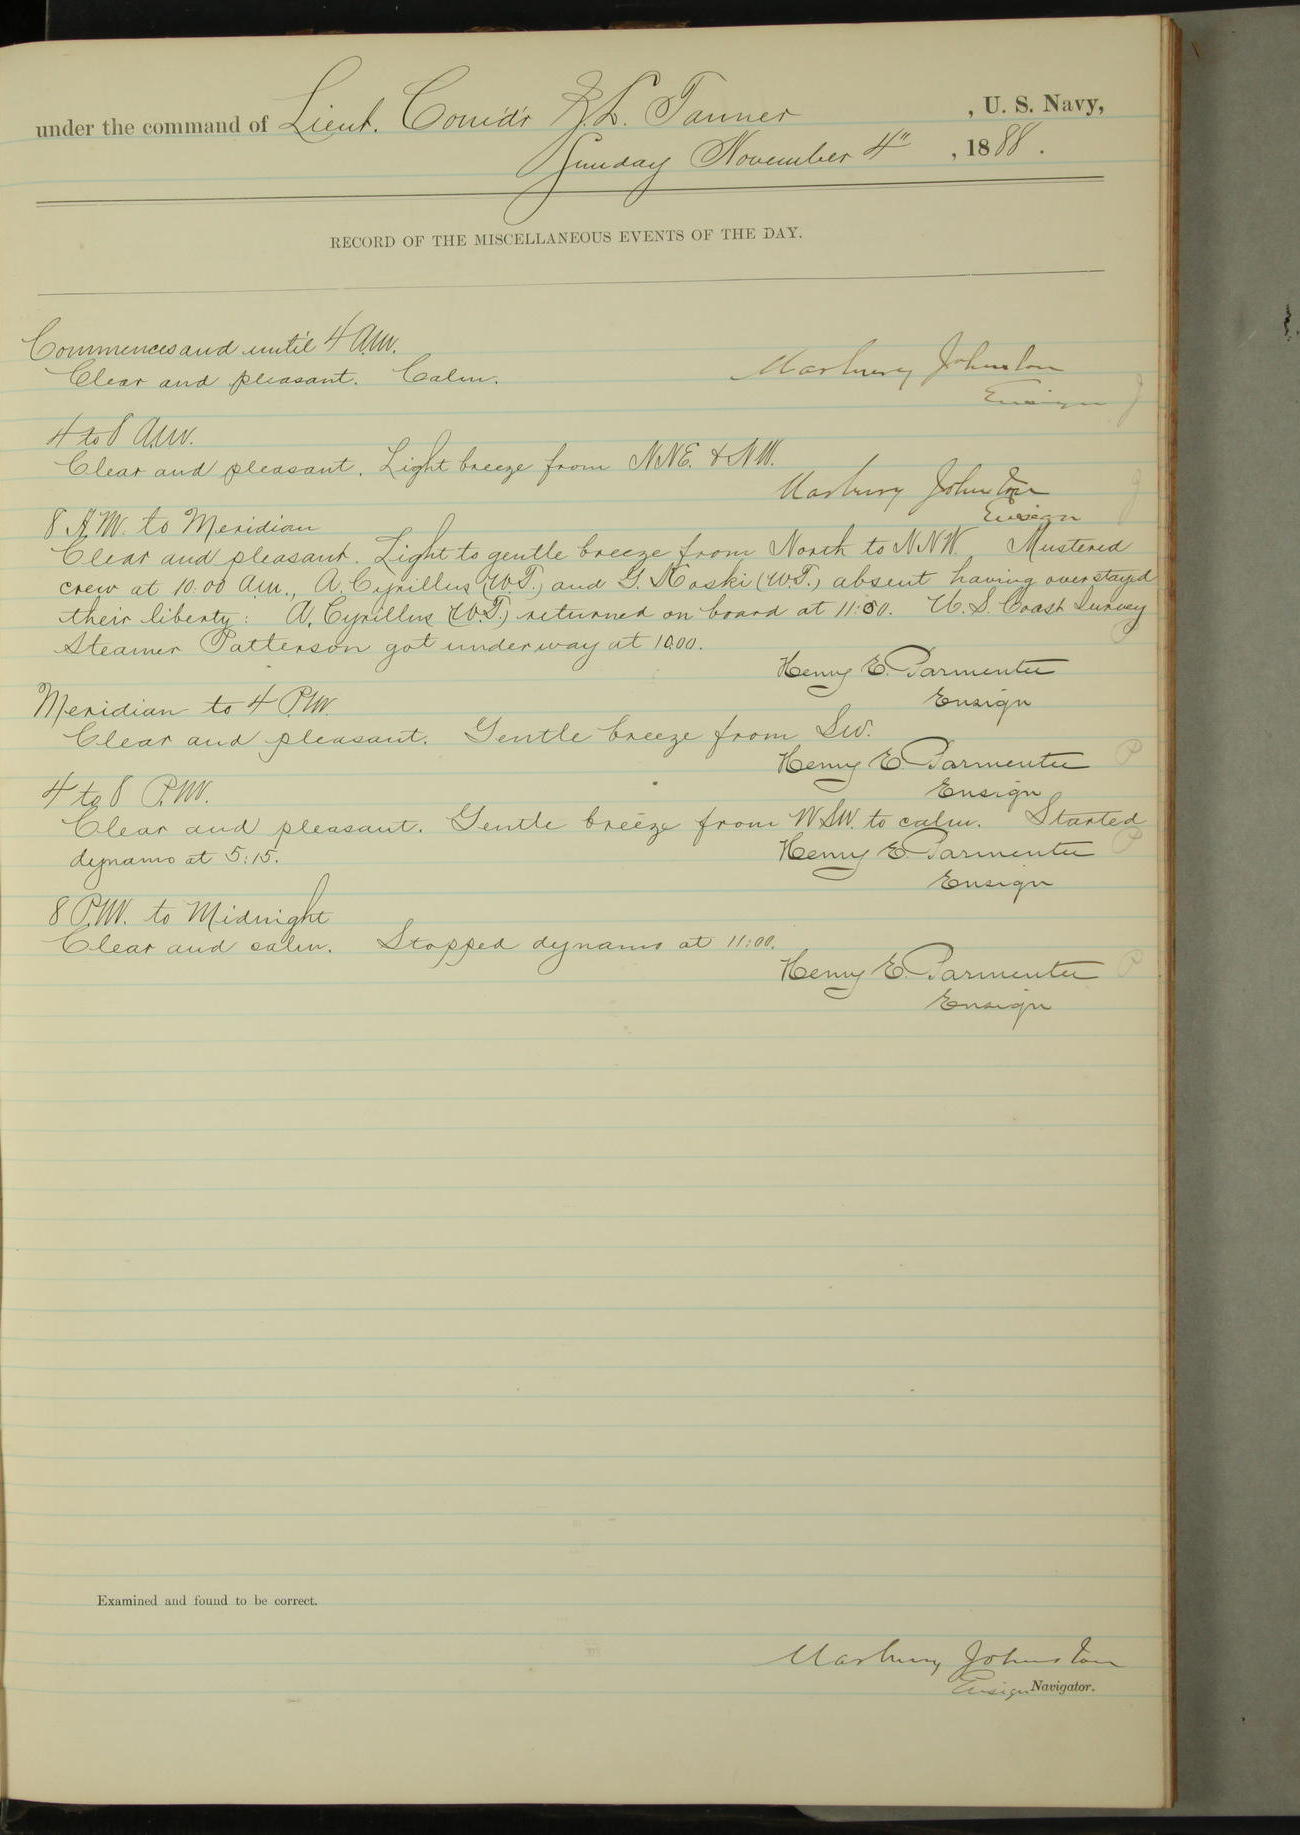 under the command of Lieut. Comd'r Z. L. Tanner , U. S. Navy,
Sunday November 4" , 1888.
RECORD OF THE MISCELLANEOUS EVENTS OF THE DAY.
Commences and until 4 A.M.
Clear and pleasant. Calm.
Marbury Johnston
Ensign
4 to 8 A.M.
Clear and pleasant. Light breeze from N.N.E. & N.W.
Marbury Johnston
Ensign
8 A.M. to Meridian
Clear and pleasant. Light to gentle breeze from North to N.N.W. Mustered
crew at 10:00 A.M., A. Cyrillus (W.T.) and G. Koski (W.T.) absent having overstayd
their liberty: A. Cyrillus (W.T.) returned on board at 11:50. U.S. Coast Survey
Steamer Patterson got underway at 10:00.
Henry E. Parmenter
Ensign
Meridian to 4 P.M.
Clear and pleasant. Gentle breeze from SW.
Henry E. Parmenter
Ensign
4 to 8 P.M.
Clear and pleasant. Gentle breeze from W.S.W. to calm. Started
dynamo at 5:15.
Henry E. Parmenter
Ensign
8 P.M. to Midnight
Clear and calm. Stopped dynamo at 11:00.
Henry E. Parmenter
Ensign
Examined and found to be correct.
Marbury Johnston
Ensign Navigator.